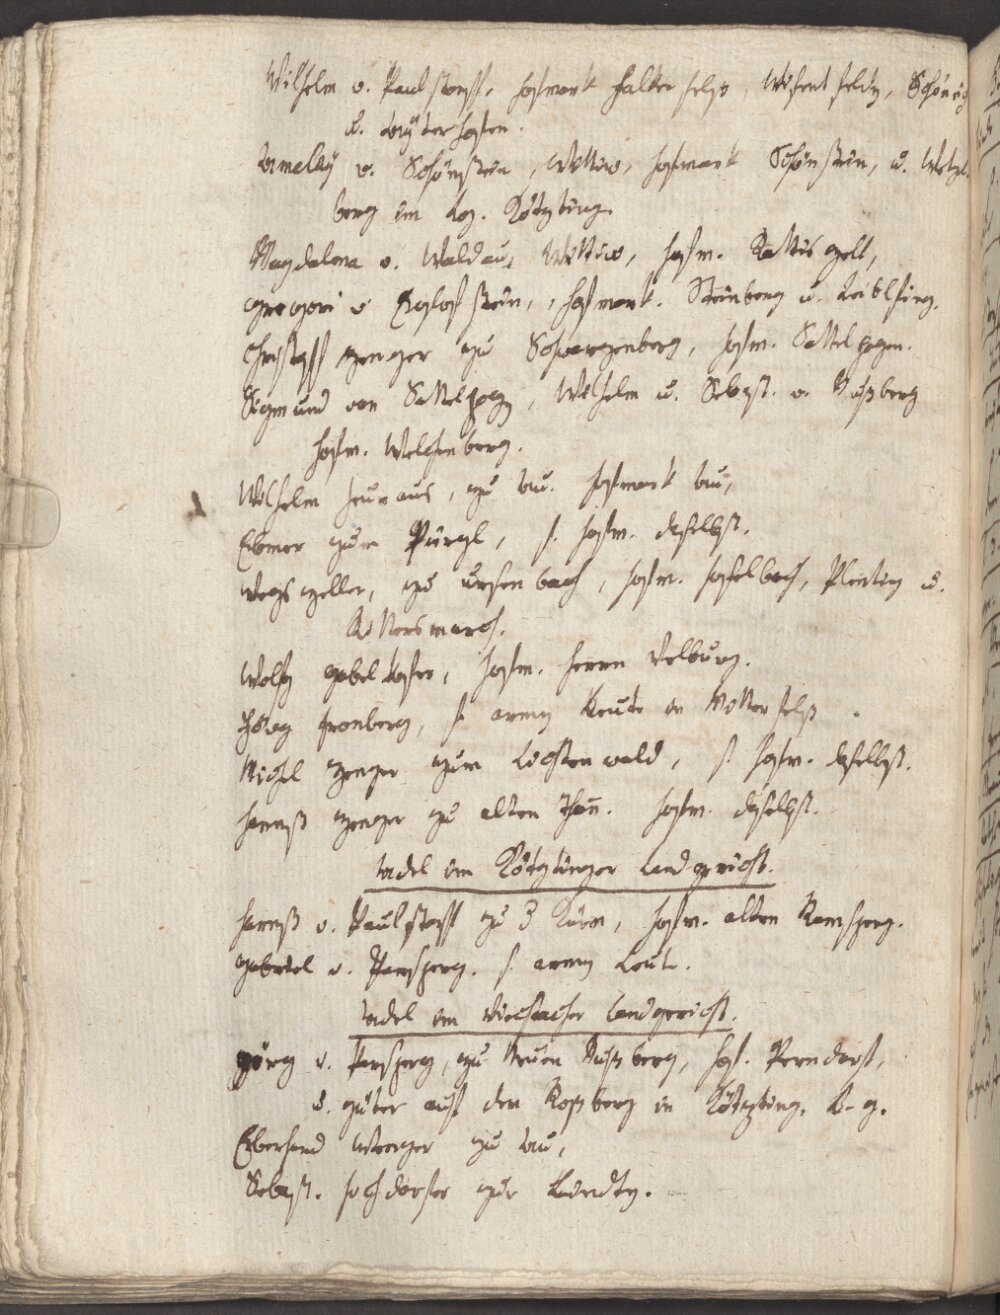 Wilhelm v. Paulstorff, hofmark Falkenfelß, Wisentfeldtz, Schöneich
u. Weÿterhofen.
Amaleÿ v. Schönstein, Wittiw, hofmark Schönstein, u. Wetzl-
berg im Lg. Kötzting.
Magdalena v. Waldau, Wittiw, hofm. Rattiszell,
Gregori v. Egloffstein, hofmark. Steinberg u. Leiblfing.
Christoff Zenger zu Schwarzenberg, hofm. Sattelpogen.
Sigmund von Sattelpog, Wilhelm u. Sebast. v. Nußberg
hofm. Welchenberg.
Wilhelm Heuraus, zu Au. hofmark Au,
Ebmer zum Pürgl, s. hofm. daselbst.
Wegs zeller, zu Ursenbach, hofm. Hofelbach, Plenting u.
Rittersmarch.
Wolfg gebelkofer, hofm. Herrn Velburg.
Jörg Fronberg, s. armen Leute in Mitterfelß.
Michel Zenger zum Lichtenwald, s. hofm. daselbst.
Hannß Zenger zu alten Than. hofm. daselbst.
Adel im Kötztinger Landgericht.
Hannß v. Paulstorff zu Kürn, hofm. alten Ramsperg.
Gabriel v. Parsperg. s. armen Leut.
Adel im Viechtacher Landgericht.
Görg v. Parsperg, zu Neuen Nußberg, hof. Perndorf,
u. güter auf den Roßberg in Kötzting. L. g.
Eberhard Wenger zu Au,
Sebast. hochdorfer zur